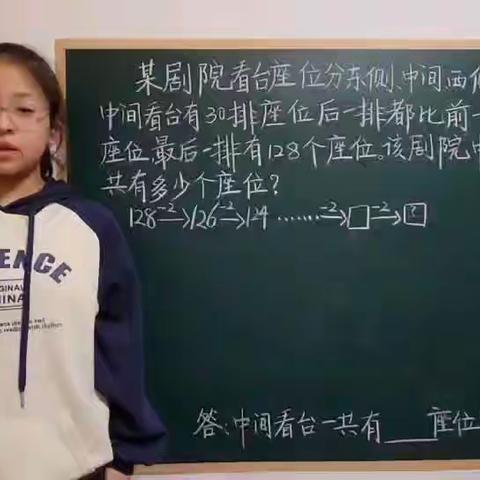 某剧院看台座位分东侧、中间、西
中间看台有30排座位后一排都比前一
座位,最后一排有128个座位。该剧院
共有多少个座位?
128 -2→ 126 -2→ 124 ……… -2→ □ -2→ ?
答:中间看台一共有___座位
ENCE
GINAL
HINA